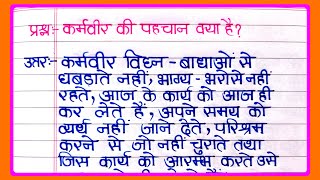 प्रश्न:- कर्मवीर की पहचान क्या है?
उत्तर:- कर्मवीर विघ्न-बाधाओं से
घबड़ाते नहीं, भाग्य-भरोसे नहीं
रहते, आज के कार्य को आज ही
कर लेते हैं, अपने समय को
व्यर्थ नहीं जाने देते, परिश्रम
करने से जी नहीं चुराते तथा
जिस कार्य को आरम्भ करते उसे